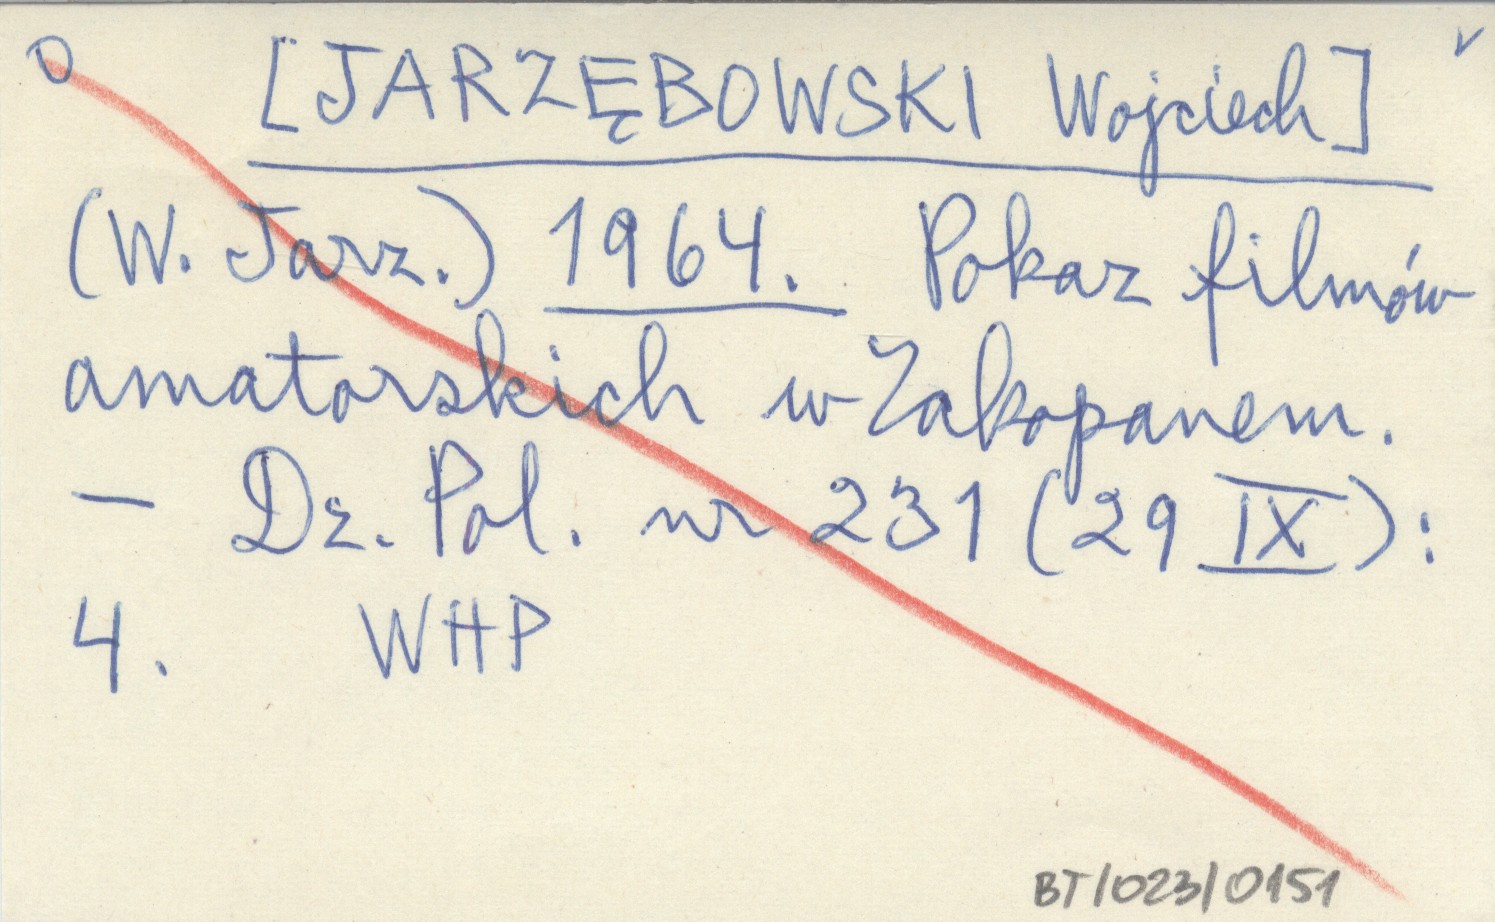 [JARZĘBOWSKI Wojciech]
(W. Jarz.) 1964. Pokaz filmów
amatorskich w Zakopanem.
— Dz. Pol. nr 231 (29 IX):
4. WHP
BT/023/0151